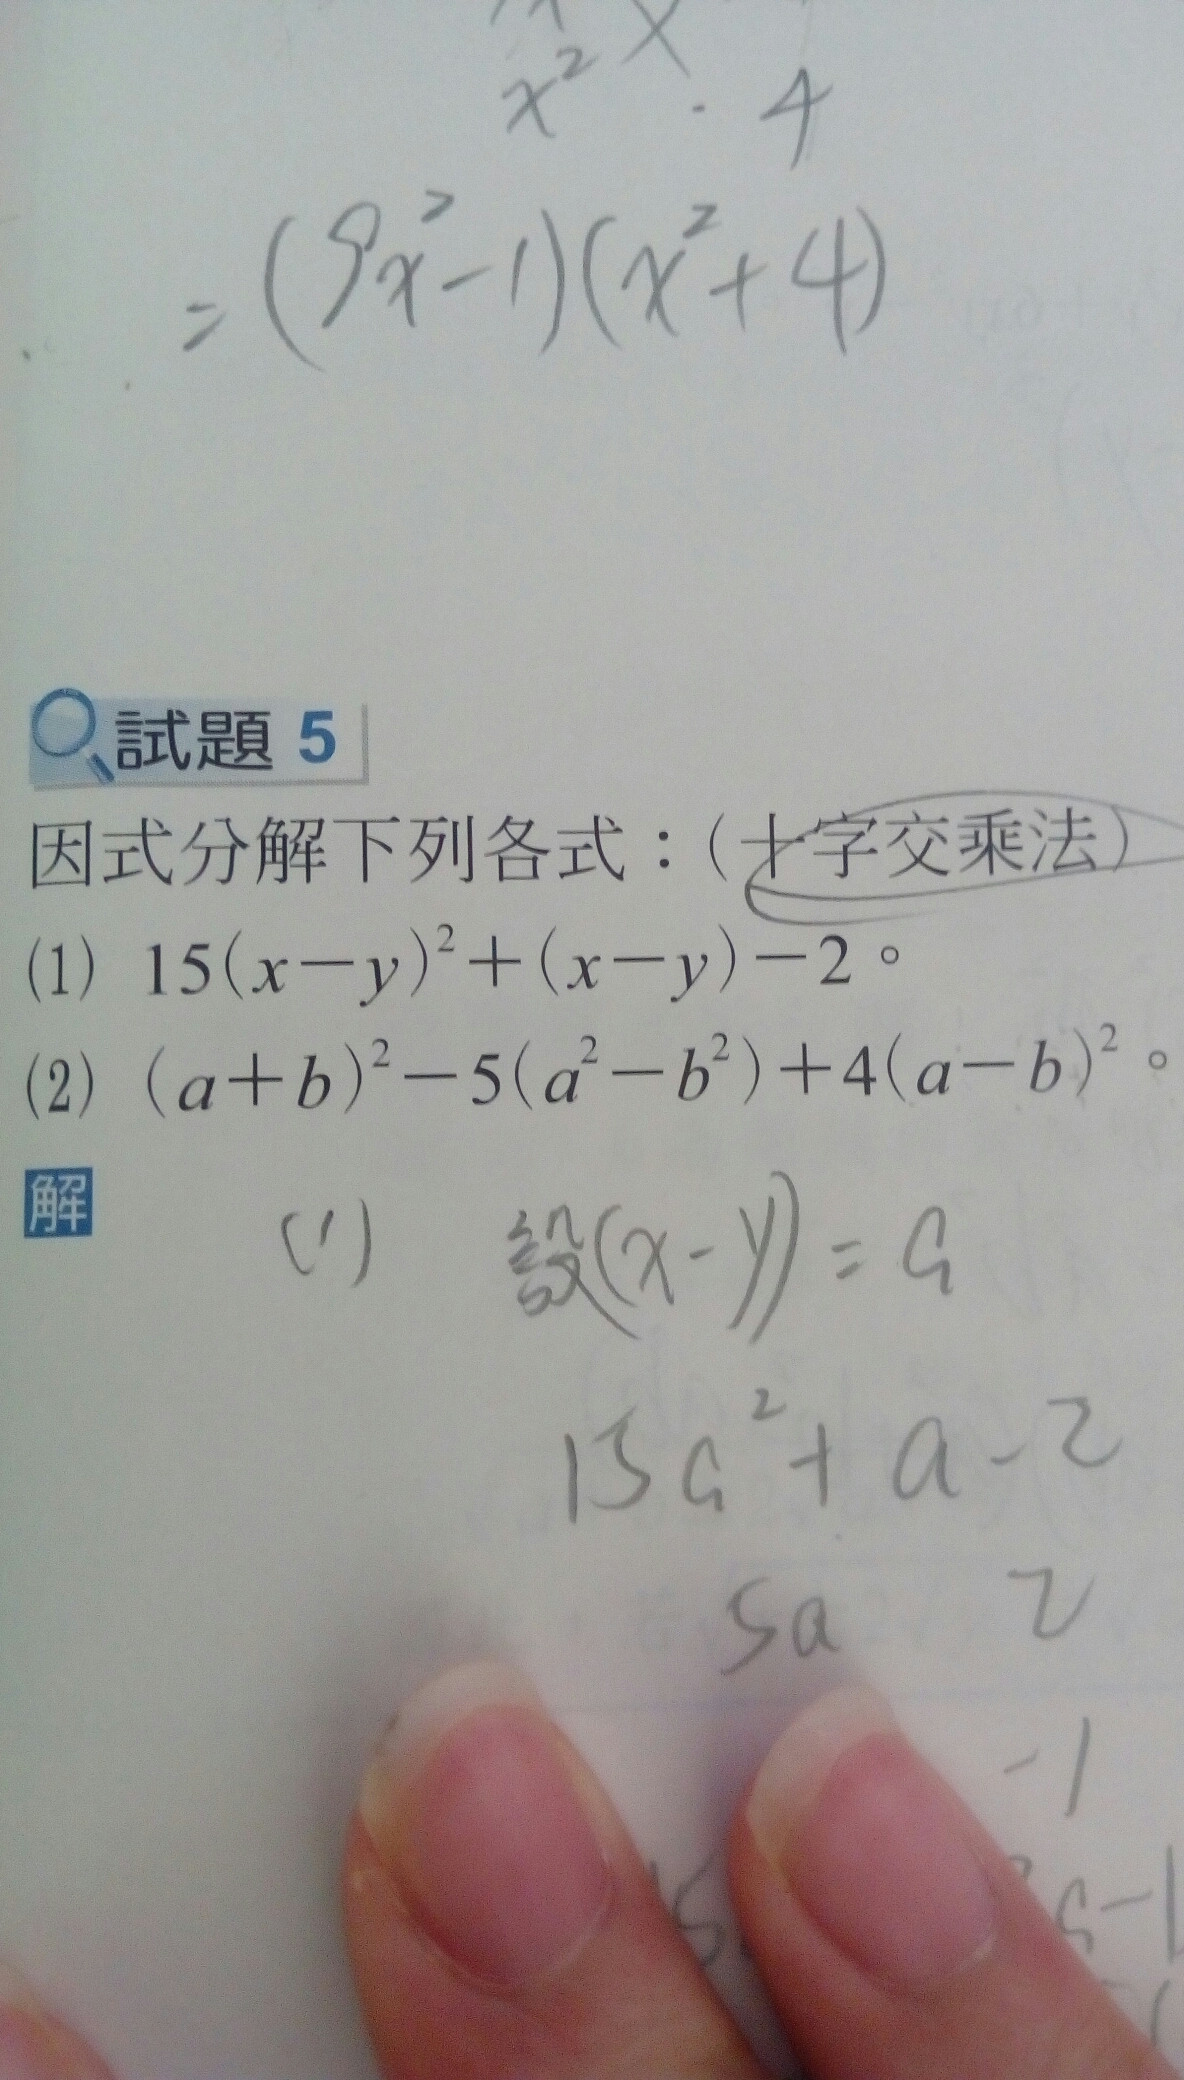 x² · 4
= (9x²-1)(x²+4)
試題 5
因式分解下列各式：(十字交乘法)
(1) 15(x-y)²+(x-y)-2。
(2) (a+b)²-5(a²-b²)+4(a-b)²。
解
(1) 設(x-y)=a
15a²+a-2
5a 2
-1